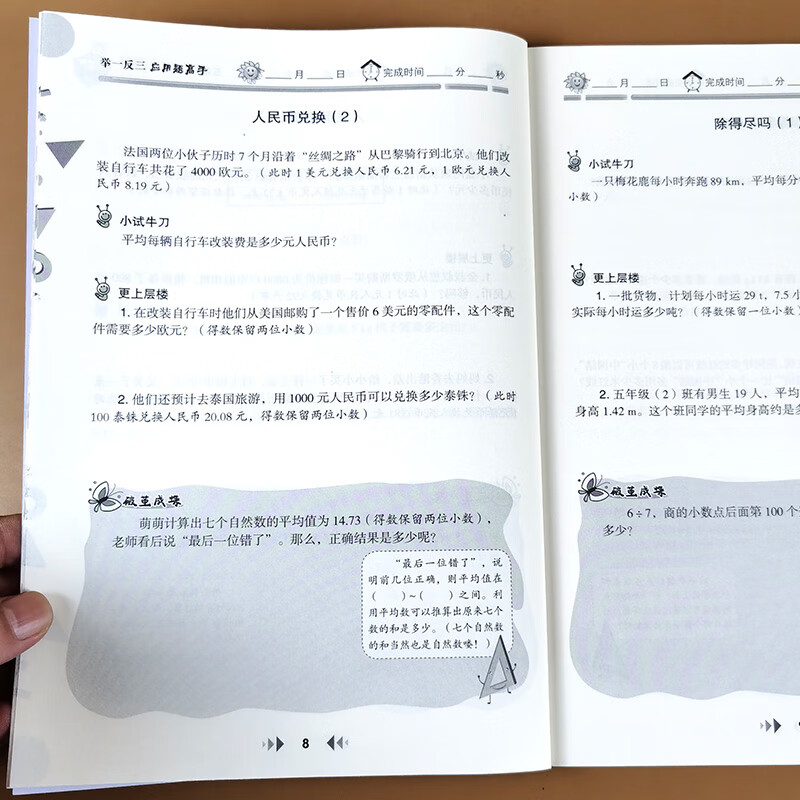 举一反三 应用题高手
____月____日 完成时间____分____秒
人民币兑换（2）
法国两位小伙子历时 7 个月沿着“丝绸之路”从巴黎骑行到北京。他们改
装自行车共花了 4000 欧元。（此时 1 美元兑换人民币 6.21 元，1 欧元兑换人
民币 8.19 元）
小试牛刀
平均每辆自行车改装费是多少元人民币？
更上层楼
1. 在改装自行车时他们从美国邮购了一个售价 6 美元的零配件，这个零配
件需要多少欧元？（得数保留两位小数）
2. 他们还预计去泰国旅游，用 1000 元人民币可以兑换多少泰铢？（此时
100 泰铢兑换人民币 20.08 元，得数保留两位小数）
破茧成蝶
萌萌计算出七个自然数的平均值为 14.73（得数保留两位小数），
老师看后说“最后一位错了”。那么，正确结果是多少呢？
“最后一位错了”，说
明前几位正确，则平均值在
（ ）~（ ）之间。利
用平均数可以推算出原来七个
数的和是多少。（七个自然数
的和当然也是自然数喽！）
8
____月____日 完成时间____分
除得尽吗（1）
小试牛刀
一只梅花鹿每小时奔跑 89 km，平均每分
小数）
更上层楼
1. 一批货物，计划每小时运 29 t，7.5 小
实际每小时运多少吨？（得数保留一位小数）
2. 五年级（2）班有男生 19 人，平均
身高 1.42 m。这个班同学的平均身高约是多
破茧成蝶
6÷7，商的小数点后面第 100 个
多少？